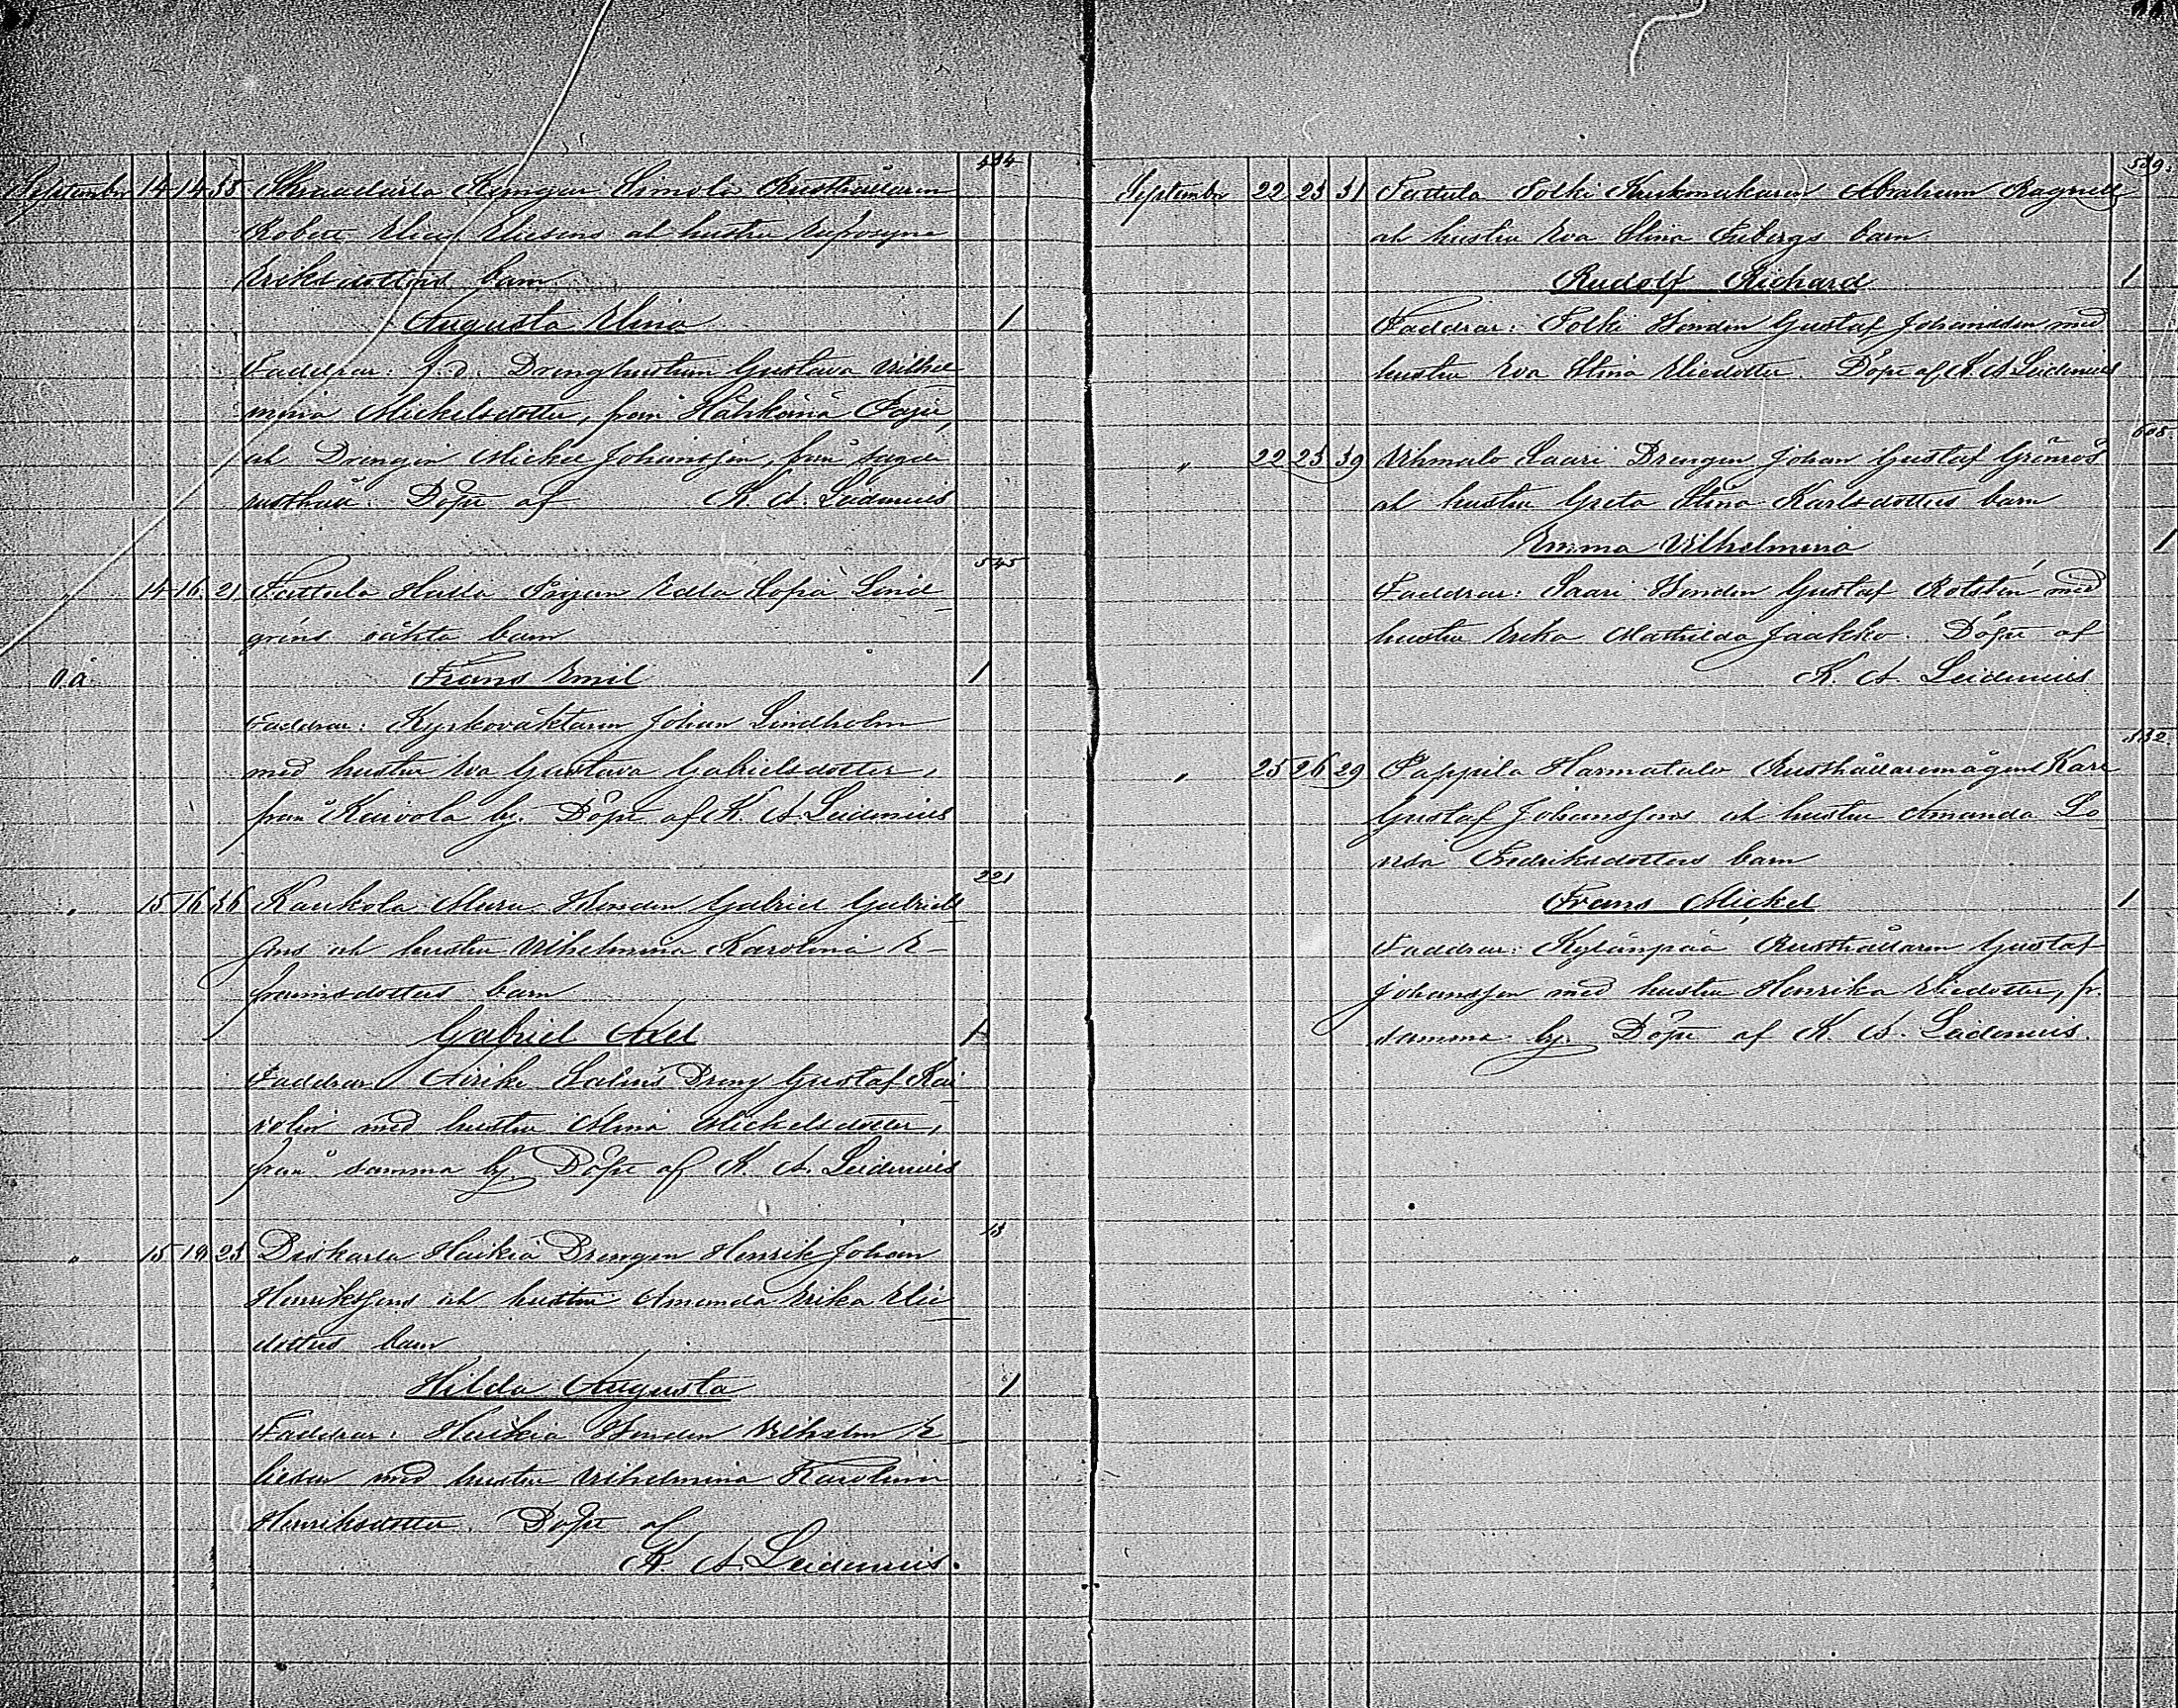 434
September 14 14 38 Skraadarla Simola Rusthållaren
Robert Elias Eliesens och hustru Eufrosyne
Eriksdotters barn
Augusta Elina 1
Faddrar: f. d. Drenghustrun Gustava Vilhel
mina Mickelsdotter, från
och Drengen Mickel Johansson, från
rusthåll. Döpt af K. A. Leidenius
545
" 14 16 21 Pattula Halla Pigan Edla Sofia Lind
gréns oäkta barn
o.ä. Frans Emil 1
Faddrar: Kyrkovaktaren Johan Lindholm
med hustru Eva Gustava Gabrielsdotter,
från Kaivola by. Döpt af K. A. Leidenius
221
" 15 16 36 Kaukola Muru Bonden Gabriel Gabriels
sons och hustru Vilhelmina Karolina E-
fraimsdotters barn
Gabriel Axel 1
Faddrar: Airiki Dreng Gustaf Kai
volin med hustru Mina Mickelsdotter,
från samma by. Döpt af K. A. Leidenius
13
" 15 19 23 Haikiä Drengen Henrik Johan
Henrikssons och hustru Amanda Erika Elie
dotters barn
Hilda Augusta 1
Faddrar: Haikia Bonden Vilhelm E
liesen med hustru Vilhelmina Karolina
Henriksdotter. Döpt af
K. A. Leidenius.
539.
September 22 23 31 Pattula Polki Krukomakaren Abraham Ragnells
och hustru Eva Stina Fribergs barn
Rudolf Richard 1
Faddrar: Polki Bonden Gustaf Johansson med
hustru Eva Stina Eliedotter. Döpt af K. A. Leidenius
608.
" 22 23 39 Uhmalo Saari Drengen Johan Gustaf Grönroos
och hustru Greta Stina Karlsdotters barn
Emma Vilhelmina 1
Faddrar: Saari Bonden Gustaf Rotstén med
hustru Erika Mathilda Jaakko. Döpt af
K. A. Leidenius
532
" 25 26 29 Pappila Harmatalo Rusthållaremågens Karl
Gustaf Johanssons och hustru Amanda Lo
visa Fredriksdotters barn
Frans Mickel 1
Faddrar: Kylänpää Rusthållaren Gustaf
Johansson med hustru Henrika Eliedotter, fr.
samma by. Döpt af K. A. Leidenius.